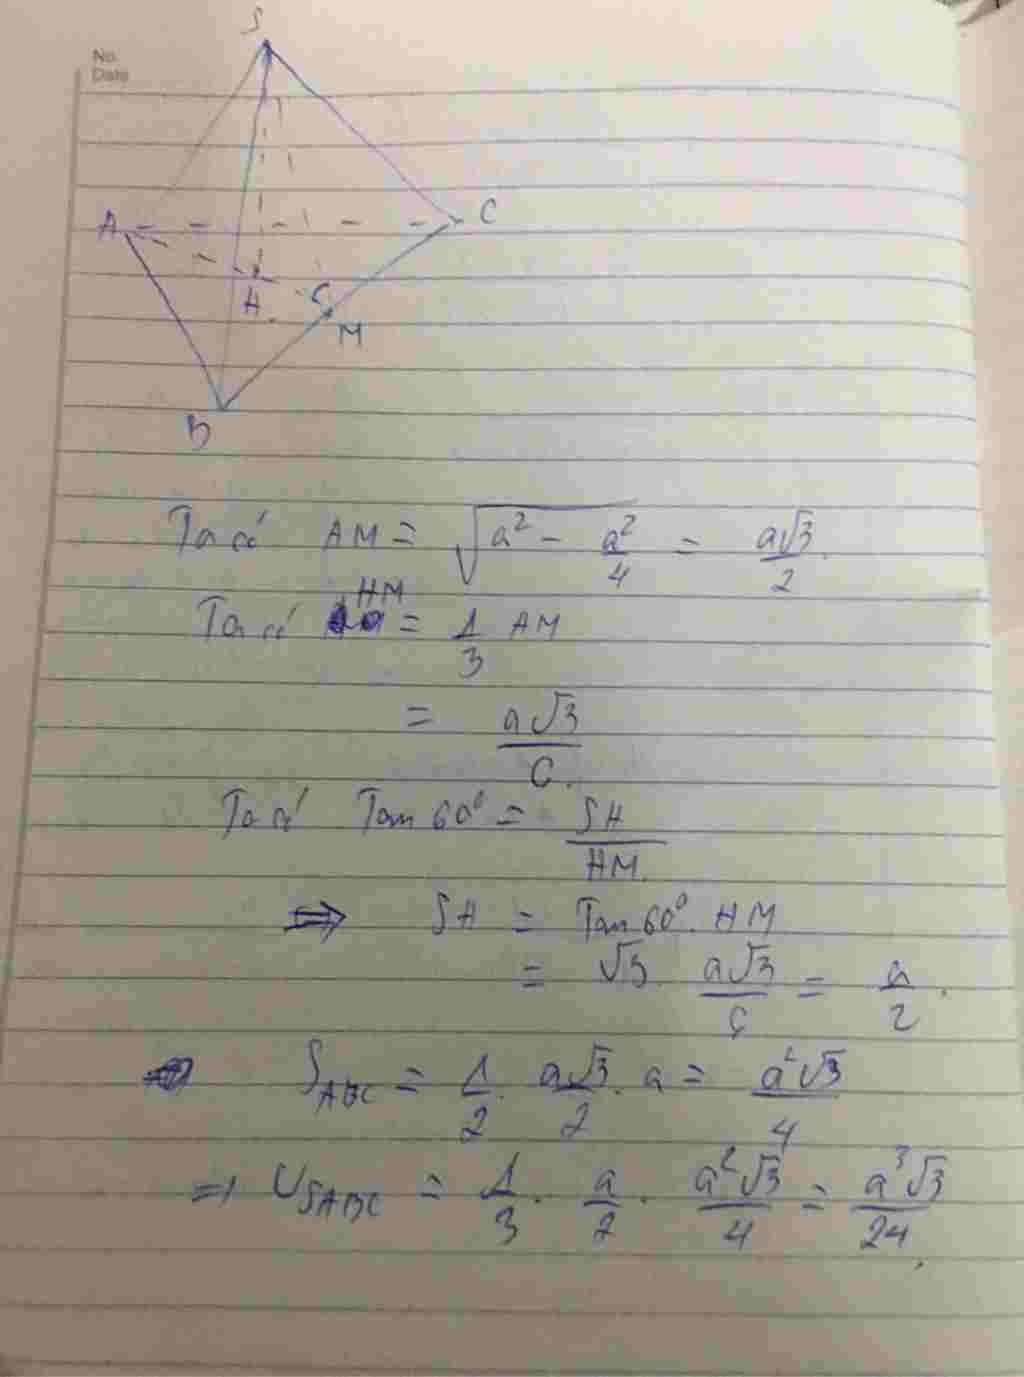 No.
Date
S
A
C
H
M
B
Ta có AM = √(a² - a²/4) = a√3/2
Ta có HM = 1/3 AM
= a√3/6
Ta có Tan 60° = SH/HM
⇒ SH = Tan 60°. HM
= √3. a√3/6 = a/2.
S_ABC = 1/2. a√3/2. a = a²√3/4
=> V_SABC = 1/3. a/2. a²√3/4 = a³√3/24.